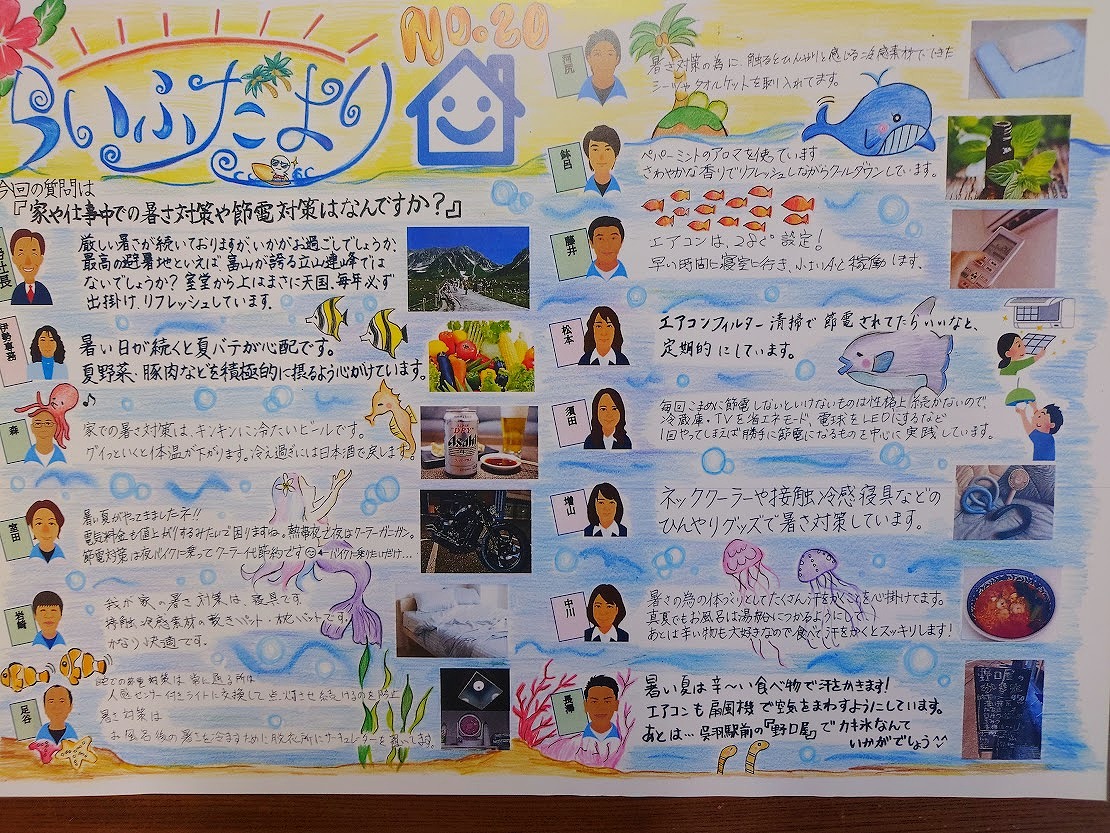 らいふだより
No.20
今回の質問は
『家や仕事中での暑さ対策や節電対策はなんですか?』
社長
厳しい暑さが続いておりますが、いかがお過ごしでしょうか。
最高の避暑地といえば、富山が誇る立山連峰では
ないでしょうか?室堂から上はまさに天国、毎年必ず
出掛け、リフレッシュしています。
伊勢専務
暑い日が続くと夏バテが心配です。
夏野菜・豚肉などを積極的に摂るよう心がけています。
森
家での暑さ対策は、キンキンに冷たいビールです。
グイっといくと体温が下がります。冷え過ぎには日本酒で戻します。
Asahi
室田
暑い夏がやってきましたネ!!
電気料金も値上がりするみたいで困りますね。熱帯夜の夜はクーラーガンガン。
節電対策は夜バイクに乗ってクーラー代節約です ←バイクに乗りたいだけ…
岩崎
我が家の暑さ対策は、寝具です。
接触冷感素材の敷きパット・枕パットです。
かなり快適です。
足谷
対策は 常に通る所は
人感センサー付きライトに交換して点灯させ続けるのを防止
暑さ対策は
お風呂後の暑さを冷ますために脱衣所にサーキュレーターを
河尻
暑さ対策の為に、触るとひんやりと感じる冷感素材でできた
シーツやタオルケットを取り入れてます。
鉢呂
ペパーミントのアロマを使っています
さわやかな香りでリフレッシュしながらクールダウンしています。
藤井
エアコンは、28℃設定!
早い時間に寝室に行き、小さいAと稼働します。
松本
エアコンフィルター清掃で節電されてたらいいなと、
定期的にしています。
須田
毎回こまめに節電しないといけないものは性格上続かないので、
冷蔵庫・TVを省エネモード、電球をLEDにするなど
1回やってしまえば勝手に節電になるものを中心に実践しています。
増山
ネッククーラーや接触冷感寝具などの
ひんやりグッズで暑さ対策しています。
中川
暑さの為の体づくりとしてたくさん汗をかくことを心掛けてます。
真夏でもお風呂は湯船につかるようにしていて、
あとは辛い物も大好きなので食べて汗をかくとスッキリします!
長澤
暑い夏は辛~い食べ物で汗をかきます!
エアコンも扇風機で空気をまわすようにしています。
あとは…呉羽駅前の『野口屋』でカキ氷なんて
いかがでしょう
野口屋